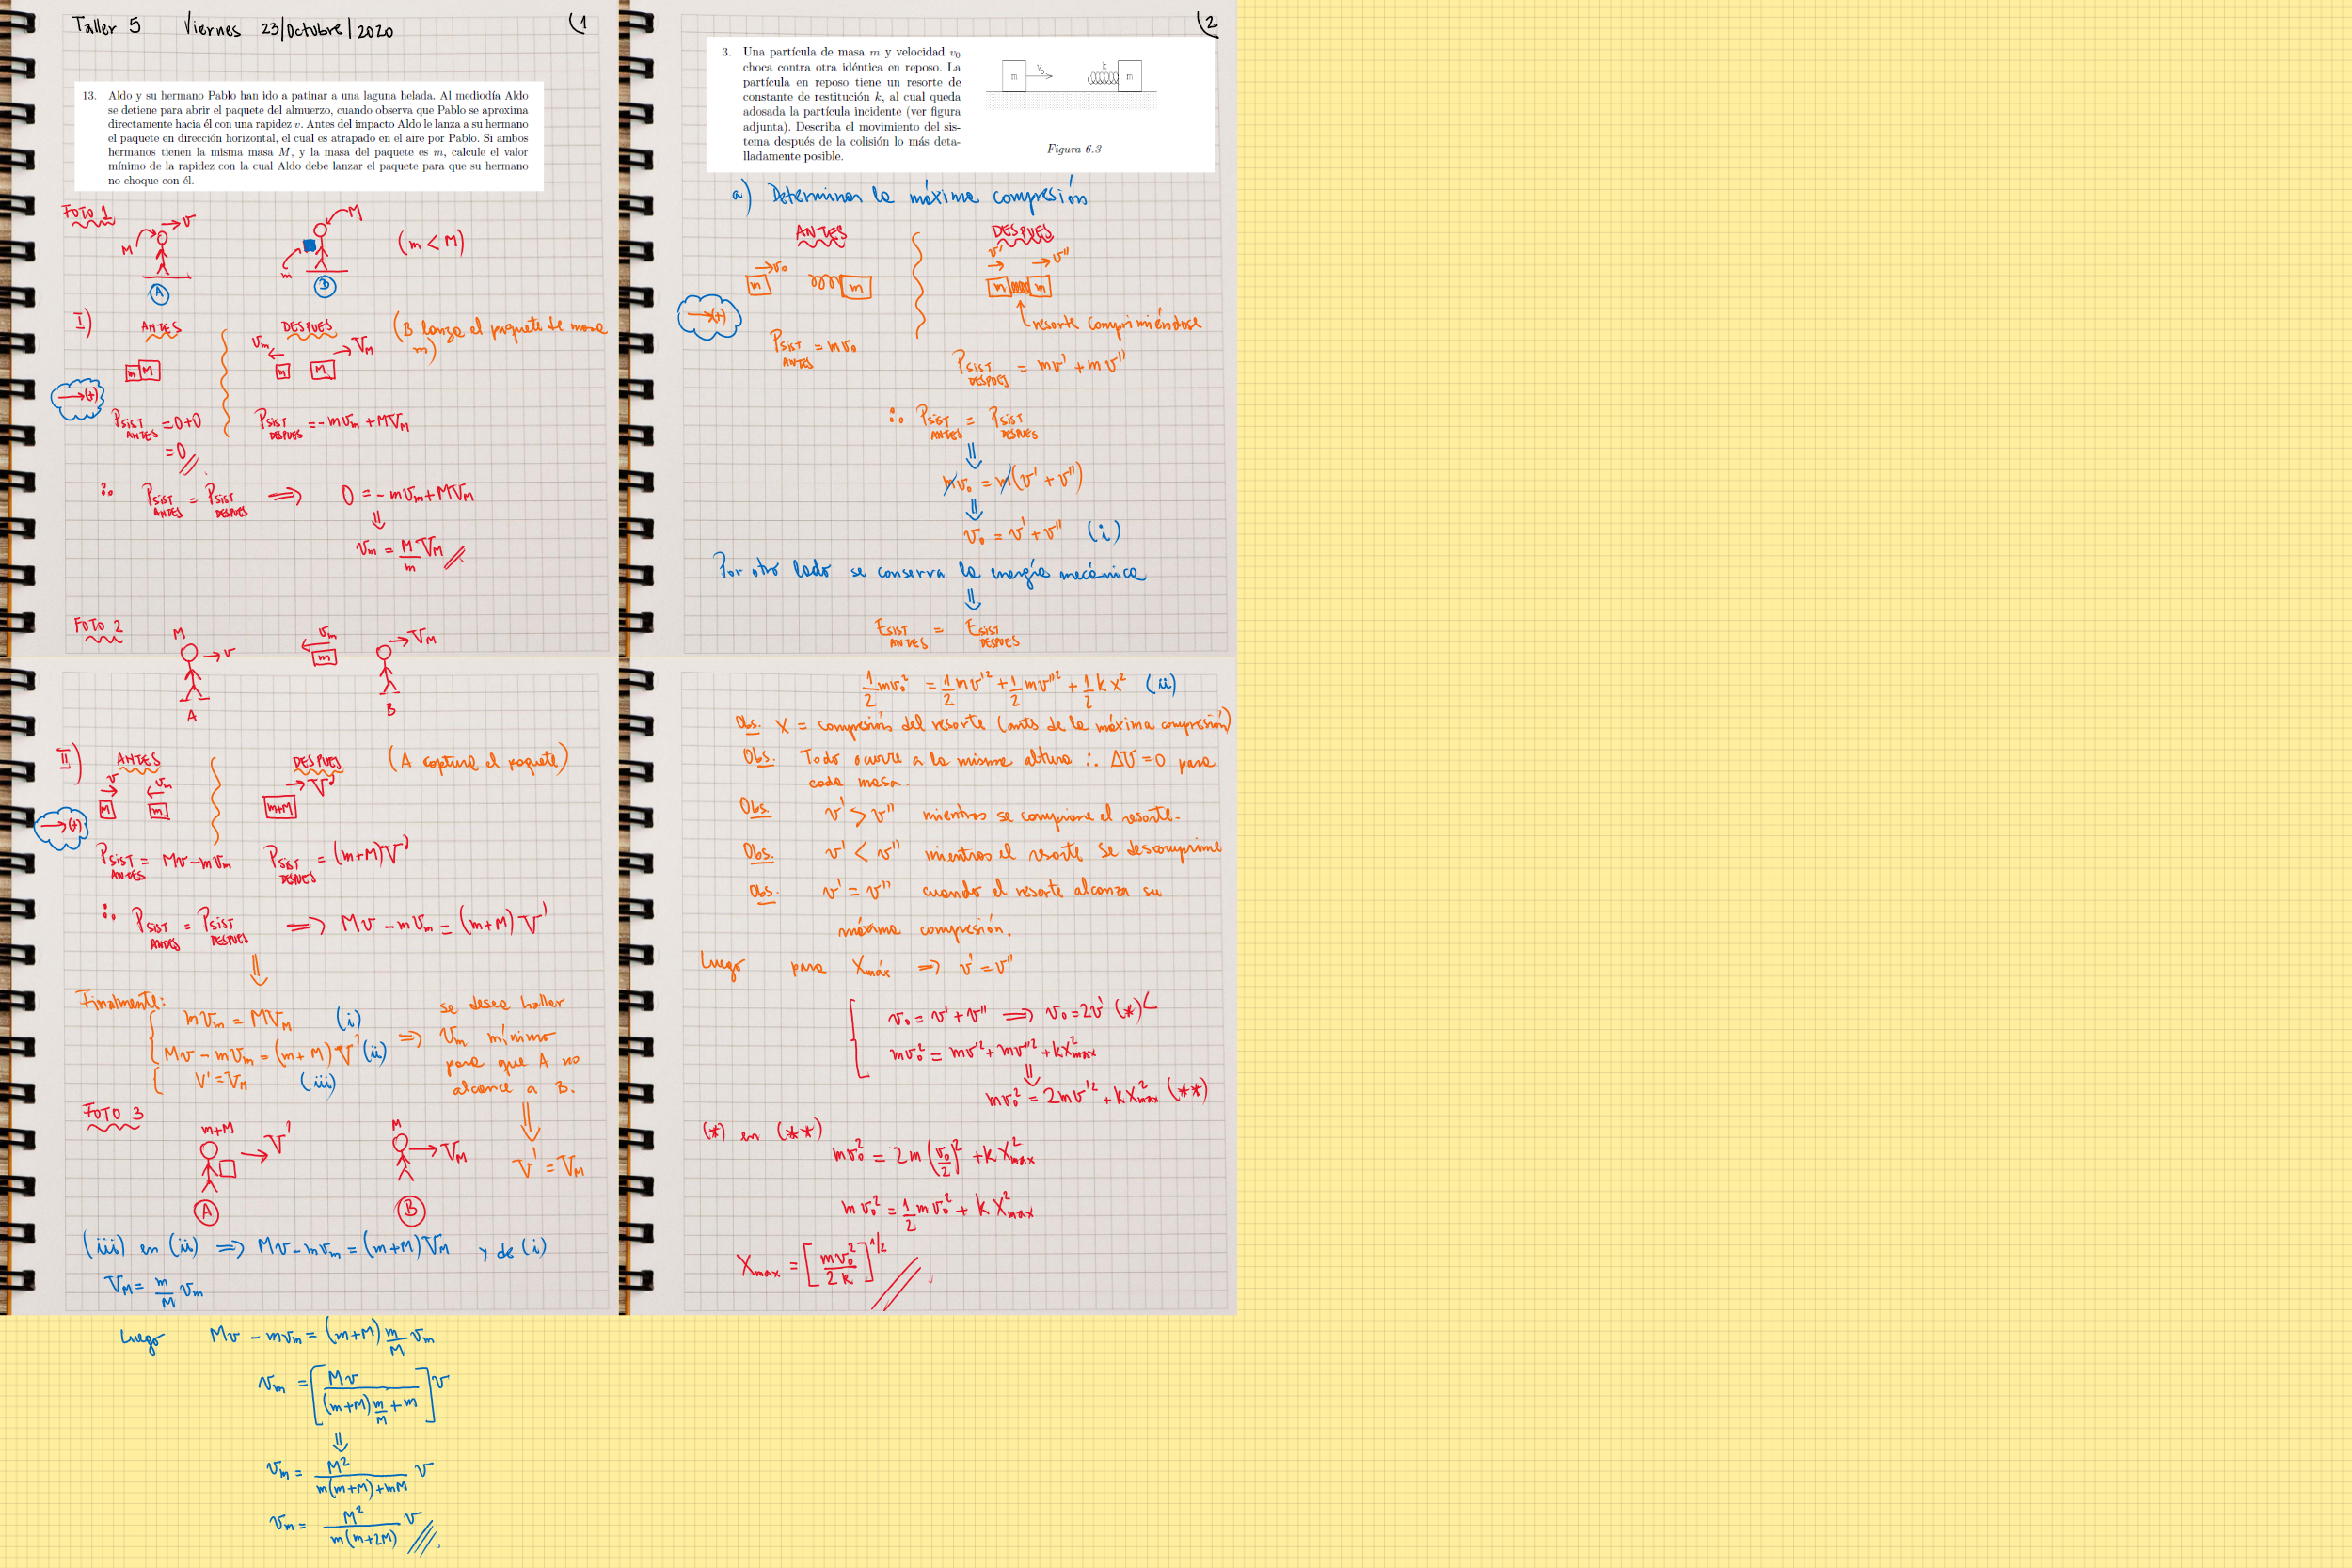 Taller 5 Viernes 23/Octubre/2020 (1
13. Aldo y su hermano Pablo han ido a patinar a una laguna helada. Al mediodía Aldo
se detiene para abrir el paquete del almuerzo, cuando observa que Pablo se aproxima
directamente hacia él con una rapidez v. Antes del impacto Aldo le lanza a su hermano
el paquete en dirección horizontal, el cual es atrapado en el aire por Pablo. Si ambos
hermanos tienen la misma masa M, y la masa del paquete es m, calcule el valor
mínimo de la rapidez con la cual Aldo debe lanzar el paquete para que su hermano
no choque con él.
FOTO 1
M → v
M
m
(m < M)
A
B
I) ANTES DESPUES (B lanza el paquete de masa m)
m M
v_m ← m M → V_M
→(+)
P_SIST ANTES = 0+0
= 0
P_SIST DESPUES = -m v_m + M V_M
∴ P_SIST ANTES = P_SIST DESPUES ⟹ 0 = -m v_m + M V_M
⇓
v_m = M/m V_M
FOTO 2
M → v
v_m ← m
→ V_M
A
B
II) ANTES DESPUES (A captura el paquete)
v → M v_m ← m
→ V' m+M
→(+)
P_SIST ANTES = Mv - m v_m P_SIST DESPUES = (m+M)V'
∴ P_SIST ANTES = P_SIST DESPUES ⟹ Mv - m v_m = (m+M) V'
⇓
Finalmente:
m v_m = M V_M (i)
Mv - m v_m = (m+M) V' (ii)
V' = V_M (iii)
⟹ se desea hallar
v_m mínimo
para que A no
alcance a B.
⇓
V' = V_M
FOTO 3
m+M → V'
M → V_M
A
B
(iii) en (ii) ⟹ Mv - m v_m = (m+M) V_M y de (i)
V_M = m/M v_m
Luego Mv - m v_m = (m+M) m/M v_m
v_m = [Mv / ((m+M) m/M + m)] v
⇓
v_m = M² / (m(m+M)+mM) v
v_m = M² / (m(m+2M)) v
(2
3. Una partícula de masa m y velocidad v₀
choca contra otra idéntica en reposo. La
partícula en reposo tiene un resorte de
constante de restitución k, al cual queda
adosada la partícula incidente (ver figura
adjunta). Describa el movimiento del sis-
tema después de la colisión lo más deta-
lladamente posible.
m v₀ k m
Figura 6.3
a) Determinar la máxima compresión
ANTES DESPUES
→ v₀ m m
v' → → v'' m m
resorte comprimiéndose
→(+)
P_SIST ANTES = m v₀
P_SIST DESPUES = m v' + m v''
∴ P_SIST ANTES = P_SIST DESPUES
⇓
m v₀ = m(v' + v'')
⇓
v₀ = v' + v'' (i)
Por otro lado se conserva la energía mecánica
⇓
E_SIST ANTES = E_SIST DESPUES
1/2 m v₀² = 1/2 m v'² + 1/2 m v''² + 1/2 k x² (ii)
Obs. X = compresión del resorte (antes de la máxima compresión)
Obs. Todo ocurre a la misma altura ∴ ΔU = 0 para
cada masa.
Obs. v' > v'' mientras se comprime el resorte.
Obs. v' < v'' mientras el resorte se descomprime
Obs. v' = v'' cuando el resorte alcanza su
máxima compresión.
Luego para Xmáx ⟹ v' = v''
v₀ = v' + v'' ⟹ v₀ = 2v' (*)
m v₀² = m v'² + m v''² + k X²max
⇓
m v₀² = 2m v'² + k X²max (**)
(*) en (**)
m v₀² = 2m (v₀/2)² + k X²max
m v₀² = 1/2 m v₀² + k X²max
Xmax = [m v₀² / 2k]^1/2